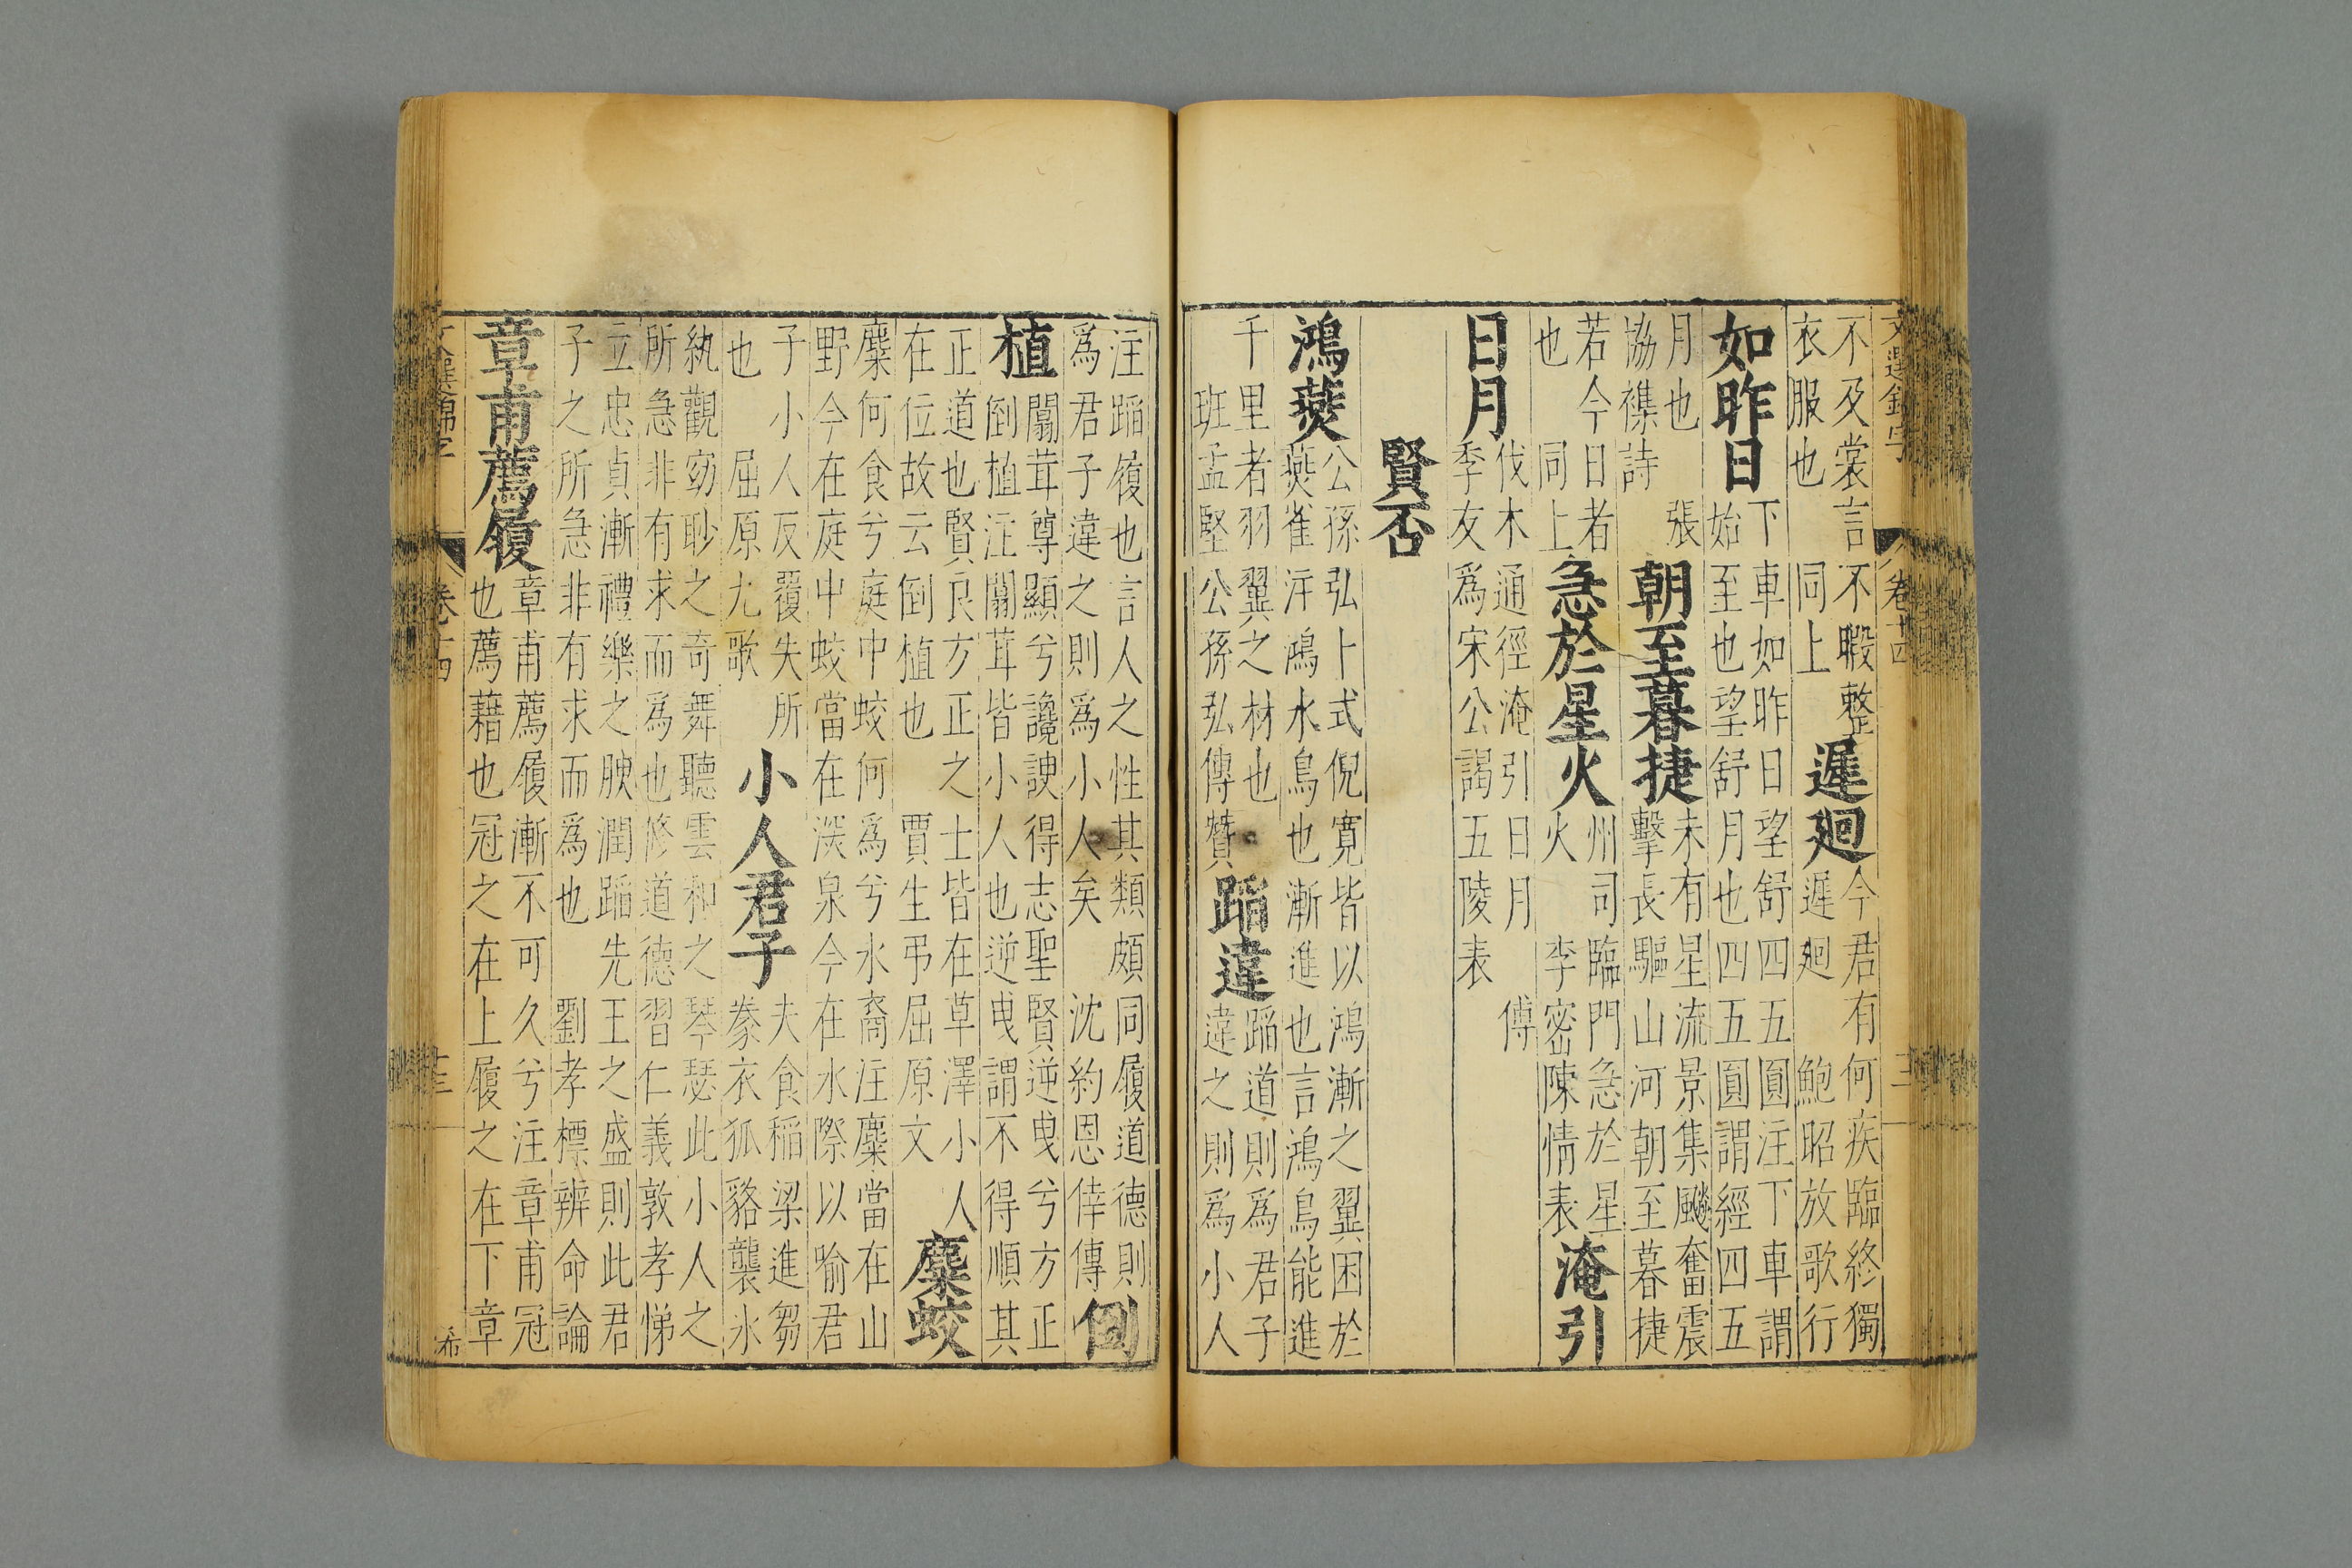 文選錦字 卷十四 十三
不及裳言不暇整
衣服也 同上
遲廻
今君有何疾臨終獨
遲廻 鮑昭放歌行
如昨日
下車如昨日望舒四五圓注下車謂
始至也望舒月也四五圓謂經四五
月也 張
協襍詩
朝至暮捷
未有星流景集飈奮震
擊長驅山河朝至暮捷
若今日者
也 同上
急於星火
州司臨門急於星
火 李密陳情表
淹引
日月
伐木通徑淹引日月 傅
季友爲宋公謁五陵表
賢否
鴻燕
公孫弘卜式倪寬皆以鴻漸之翼困於
燕雀注鴻水鳥也漸進也言鴻鳥能進
千里者羽翼之材也
班孟堅公孫弘傳贊
蹈違
蹈道則爲君子
違之則爲小人
注蹈履也言人之性其類頗同履道德則
爲君子違之則爲小人矣 沈約恩倖傳
倒
植
闒茸尊顯兮讒諛得志聖賢逆曳兮方正
倒植注闒茸皆小人也逆曳謂不得順其
正道也賢良方正之士皆在草澤小人
在位故云倒植也 賈生弔屈原文
麋蛟
麋何食兮庭中蛟何爲兮水裔注麋當在山
野今在庭中蛟當在深泉今在水際以喻君
子小人反覆失所
也 屈原九歌
小人君子
夫食稻粱進芻
豢衣狐貉襲氷
紈觀窈眇之奇舞聽雲和之琴瑟此小人之
所急非有求而爲也修道德習仁義敦孝悌
立忠貞漸禮樂之腴潤蹈先王之盛則此君
子之所急非有求而爲也 劉孝標辨命論
章甫薦履
章甫薦履漸不可久兮注章甫冠
也薦藉也冠之在上履之在下章
文選錦字 卷十四 十三 希